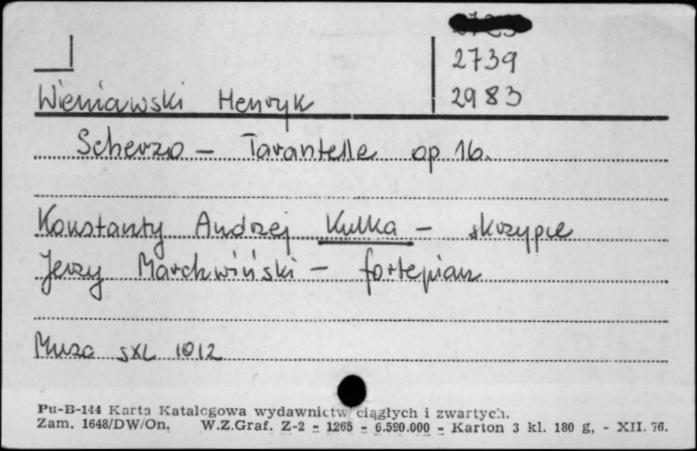 2739
2983
Wieniawski Henryk
Scherzo - Tarantelle op 16.
Konstanty Andrzej Kulka - skrzypce
Jerzy Marchwiński - fortepian
Muza SXL 1012
Pu-B-144 Karta Katalogowa wydawnictw ciągłych i zwartych.
Zam. 1648/DW/On. W.Z.Graf. Z-2 - 1265 - 6.590.000 - Karton 3 kl. 180 g, - XII. 76.